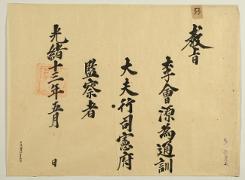 敎旨
李會源爲通訓
大夫行司憲府
監察者
光緖十三年五月　日